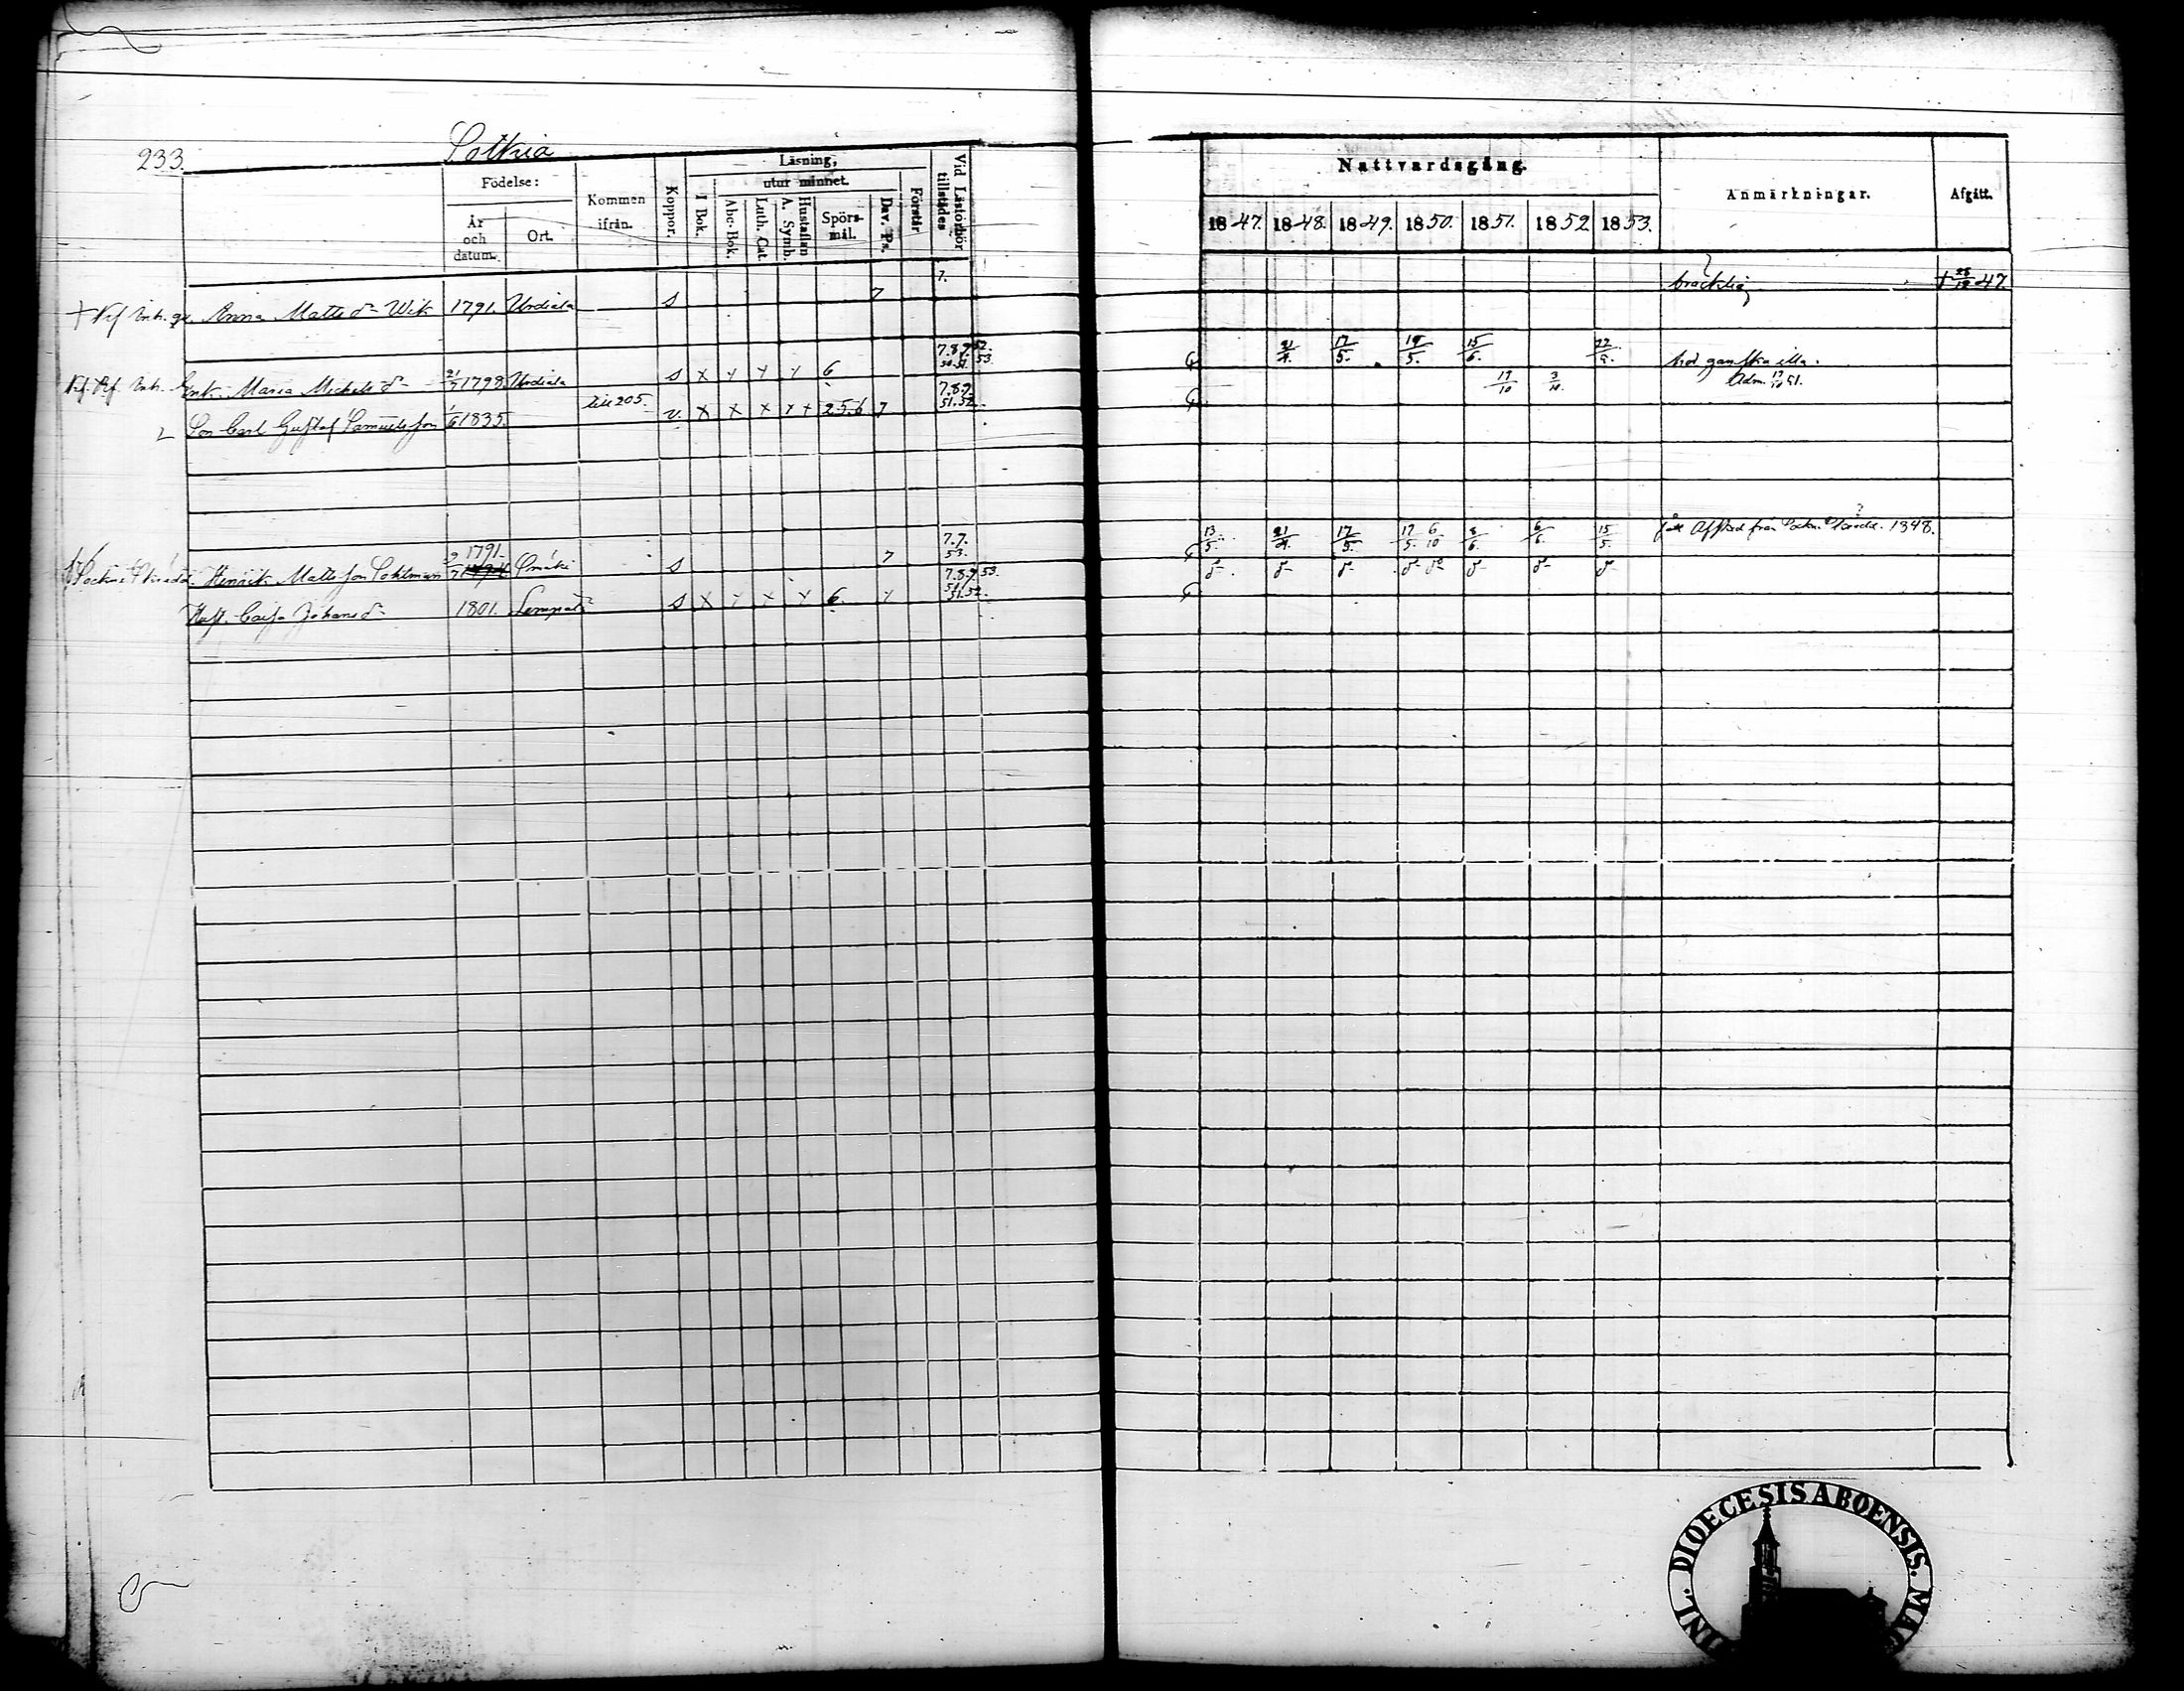 233.
Sottula
Födelse:
År och datum.
Ort.
Kommen ifrån.
Koppor.
Läsning,
utur minnet.
I Bok.
Abc-Bok.
Luth. Cat.
Hustaflan A. Symb.
Spörsmål.
Dav. Ps.
Förstår
Vid Läsförhör tillstädes
Nattvardsgång.
1847. 1848. 1849. 1850. 1851. 1852 1853.
Anmärkningar.
Afgått.
Anna Matts dr Wik 1791. Urdiala s 7 7. bräcklig † 28/12 47.
Enk. Maria Michels dr 21/7 1798. Urdiala s x y y y 6 7.8.9 52. 50.51. 53. 21/4. 17/5. 19/5. 15/6. 22/5. hod ganska illa.
Son Carl Gustaf Samuelsson 1/6 1835. till 205. v. x x x x + 2.5.6 7 7.8.9 51.52. 19/10 3/10. Adm. 19/10 51.
Henrik Mattsson Sohlman 2/7 1791. s 7 7.7. 53. 13/5. 21/4. 17/5. 17/5. 6/10 8/6. 6/6. 15/5. Afsked från 1848.
Hust. Caisa Johans dr 1801. Lempälä s x y x y 6. y 7.8.9 53. 51.52.
FINL. DIOECESIS ABOENSIS. MAG